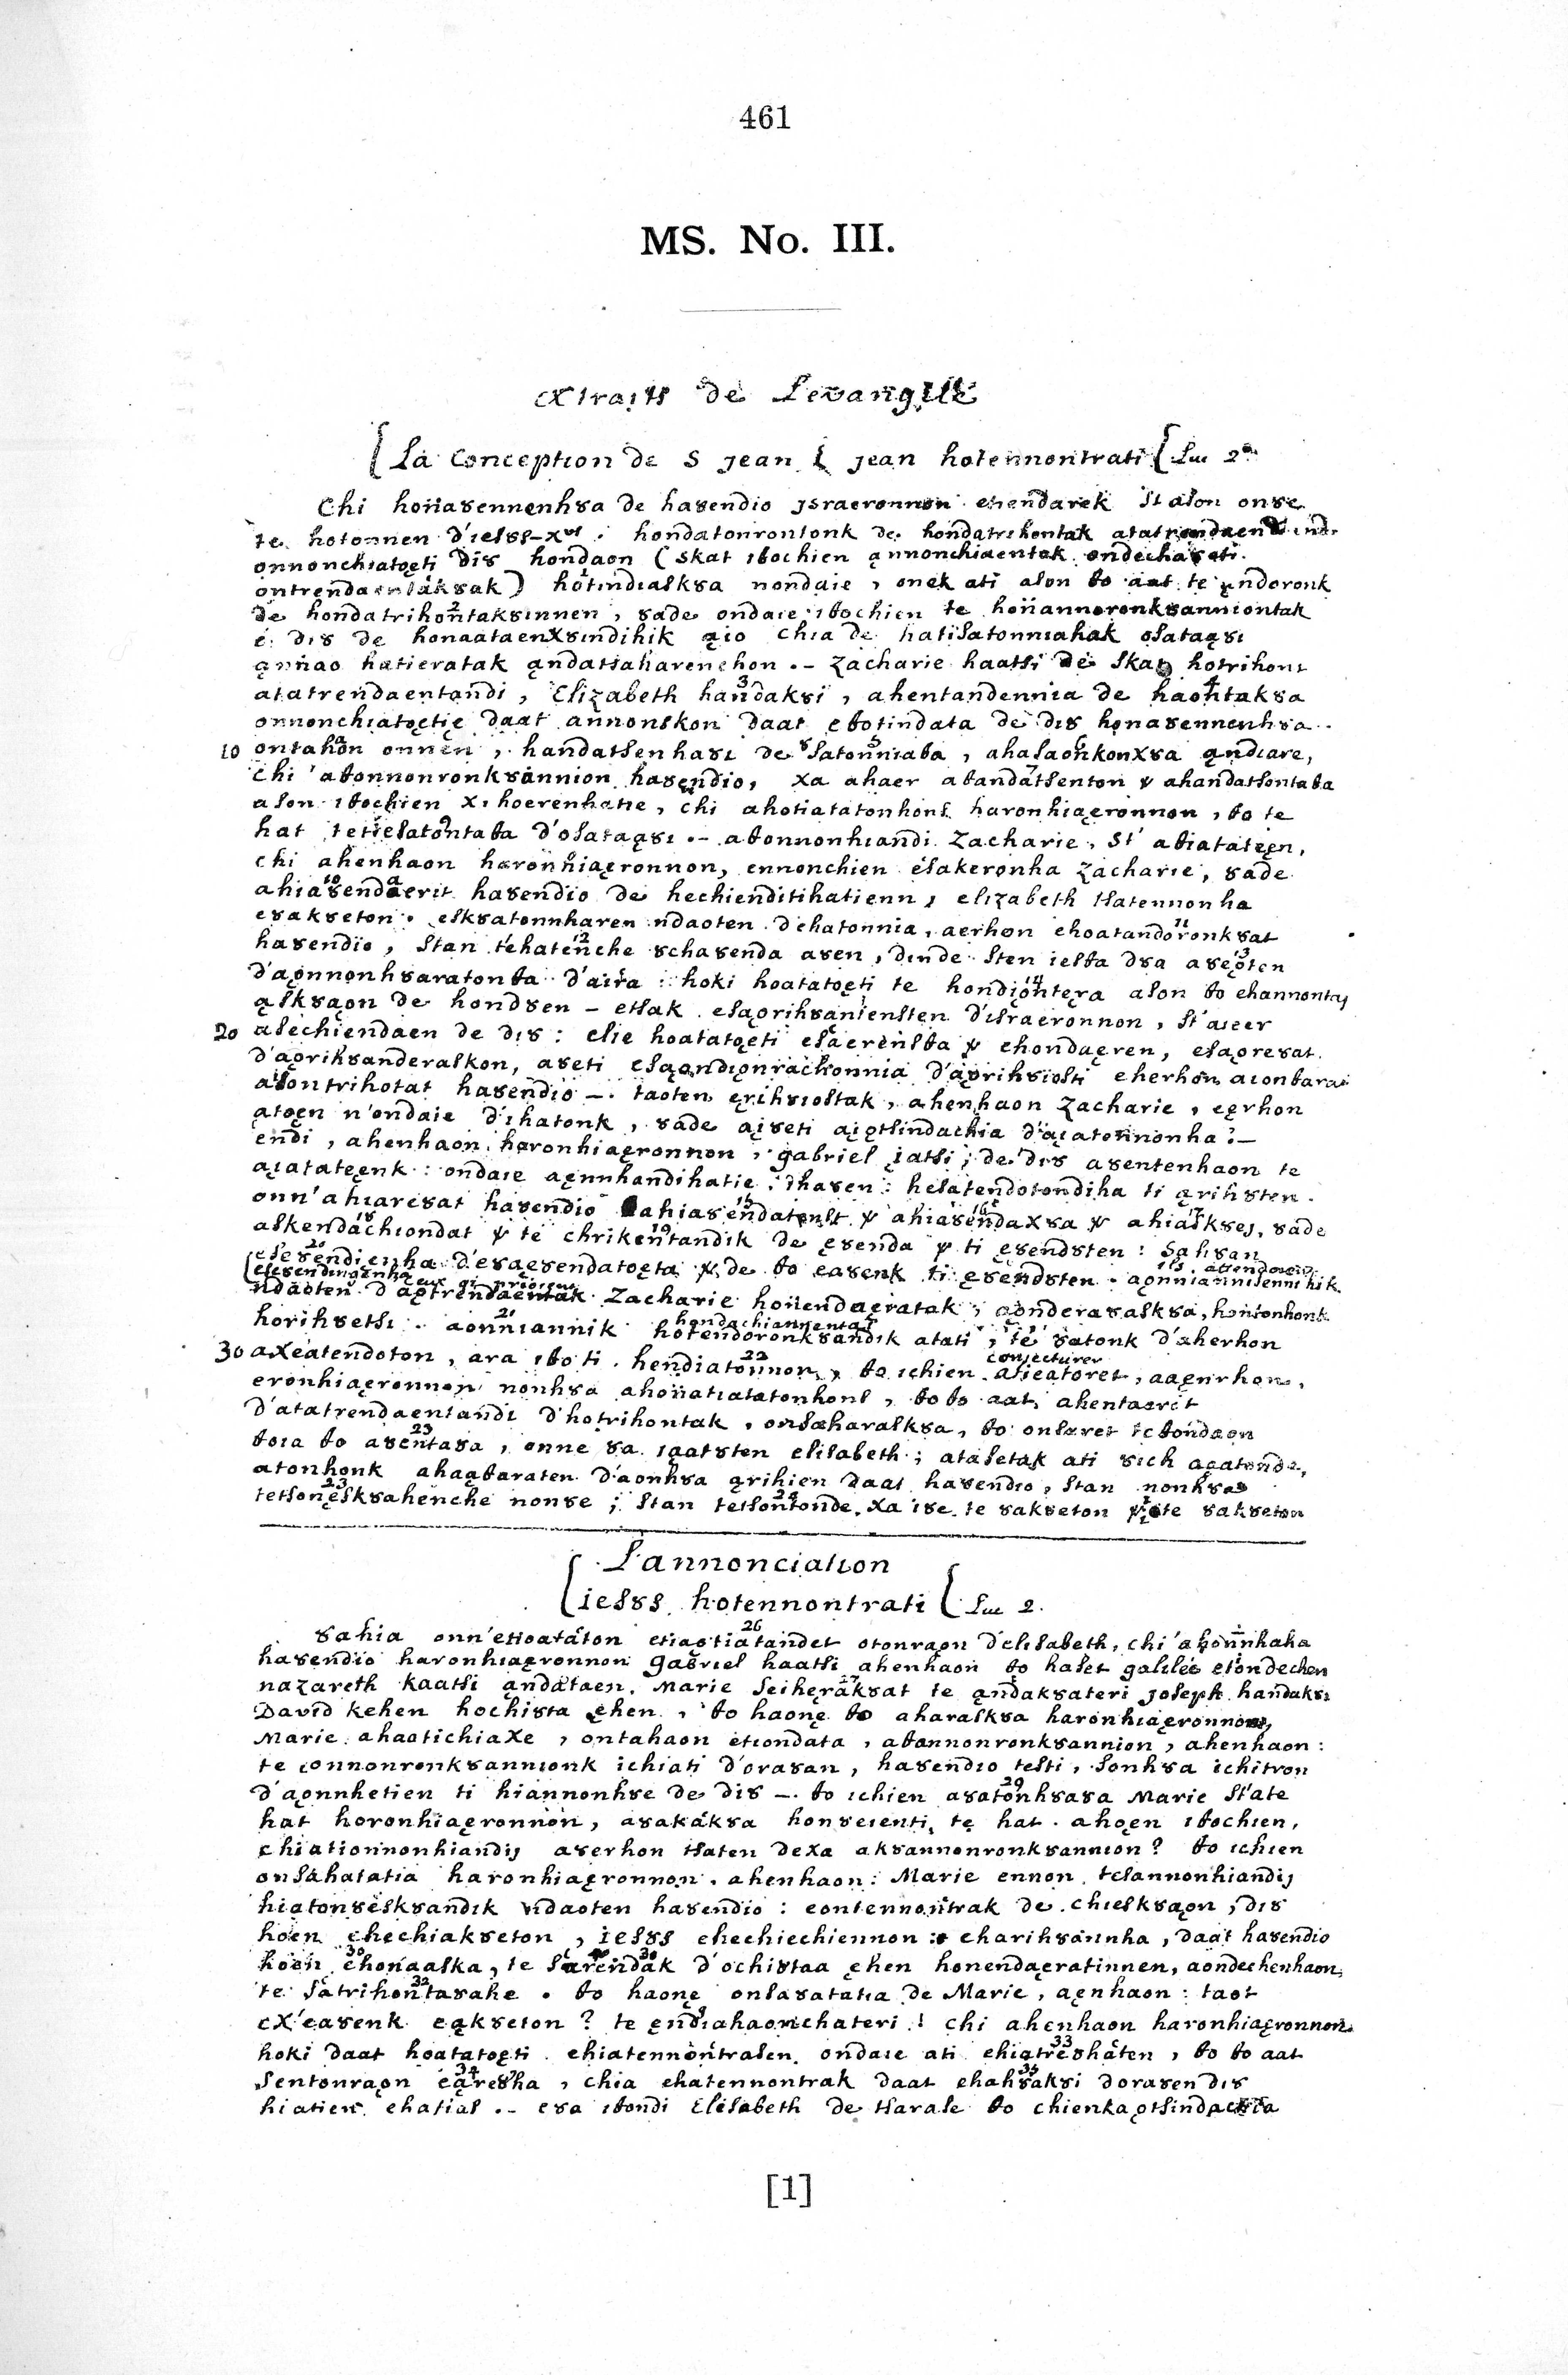 461
MS. No. III.
extraits de Levangile
{ La Conception de S jean { jean hotennontrati { Luc 2
Chi honaȣennenhȣa de haȣendio jsraeronnon ehendarek st ason onȣe
te hotonnen d'iesȣs-xst : hondatonrontonk de hondatrihontak atatrendaen
onnonchiatoęti diȣ hondaon (skat iθochien ąnnonchiaentak ondechaȣeti
ontrendaentaksak) hotindiasksa nondaie, onek ati ason θo aat te ąndoronk
de hondatrihontaksinnen, ȣade ondaie iθochien te honannoronkȣanniontak
e diȣ de honaataenxȣindihik ąio chia de hatisatonniahak osataąȣi
ąnnao hatieratak ąndatsaharenchon .- Zacharie haatsi de skat hotrihont
atatrendaentandi, Elizabeth handakȣi, ahentandennia de haontakȣa
onnonchiatoętię daat annonskon daat eθotindata de diȣ honaȣennenhȣa
10 ontahaon onnen, handatsenhaȣi de ȣsatonniaθa, ahasaonkonxȣa ąndiare,
chi aθonnonronkȣannion haȣendio, xa ahaer aθandatsenton ȣ ahandatsontaθa
ason iθochien xi hoerenhatie, chi ahotiatatonhons haronhiaęronnon, θo te
hat tetiesatontaθa d'osataąȣi .- aθonnonhiandi Zacharie, st' aθiatateęn,
chi ahenhaon haronhiaęronnon, ennonchien esakeronha Zacharie, ȣade
ahiaȣendaerit haȣendio de hechienditihatienn, elizabeth tsatennonha
eȣakȣeton. eskȣatonnharen ndaoten d'ehatonnia, aerhon ehoatandoronkȣat
haȣendio, stan tehatenche ȣchaȣenda aȣen, dinde sten iesθa dȣa aȣeoten
d'aonnonhȣaratonθa d'aira : hoki hoatatoęti te hondiontęra ason θo ehannontaj
ąskȣaon de hondȣen - etsak esaorihȣaniensten d'israeronnon, st'aieer
20 asechiendaen de diȣ : elie hoatatoęti esaerensθa ȣ ehondaęren, esaoreȣat
d'aorihȣanderaskon, aȣeti esaondionrachonnia d'aorihȣiosti eherhon aionθarat
asontrihotat haȣendio -. taoten ęrihȣiostak, ahenhaon Zacharie, eęrhon
atoęn n'ondaie d'ihatonk, ȣade aiȣeti aiotsindachia d'aiatonnonha ? -
endi, ahenhaon haronhiaęronnon, gabriel iatsi, de diȣ aȣentenhaon te
aiatateęnk : ondaie aęnnhandihatie, ihaȣen : hesatendotondiha ti ąrihȣten.
onn'ahiareȣat haȣendio ahiaȣendatenst ȣ ahiaȣendaxȣa ȣ ahiaskȣej, ȣade
askendachiondat ȣ te chrikentandik de ęȣenda ȣ ti ęȣendȣten : Sahȣan
eseȣendienha d'eȣaęȣendatoęta ȣ de θo eaȣenk ti ęȣendȣten. aonniannisennihik
ndaoten d'aotrendaentak Zacharie honendaeratak, aonderaȣaskȣa, hontonhonk
horihȣetsi. aonniannik hotendoronkȣandik atati, te ȣatonk d'aherhon
hondachiannentaȣ
30 axeatendoton, ara iθo ti hendiatonnon, θo ichien atieatoret, aaęnrhon,
conjecturer
eronhiaęronnon nonhȣa ahonatiatatonhons, θo θo aat ahentaerit
d'atatrendaentandi d'hotrihontak, onsaharaskȣa, θo onsaret teθondaon
θoia θo aȣentaȣa, onne ȣa iąatsten elisabeth ; atasetak ati ȣich aąatonde,
atonhonk ahaąθaraten d'aonhȣa ąrihien daat haȣendio, stan nonhȣa
tetsoneskȣahenche nonȣe ; stan tetsontonde. xa iȣe te ȣakȣeton ȣ te ȣakȣeton
{ L'annonciation
{ iesȣs hotennontrati { Luc 2.
ȣahia onn'etioataton etiaotiatandet otonraon d'elisabeth, chi'ahonnhaha
haȣendio haronhiaęronnon gabriel haatsi ahenhaon θo haset galilée etondechen
nazareth kaatsi andataen. Marie seiherakȣat te andakȣateri joseph handakȣi
David kehen hochiȣta ęhen, θo haonę θo aharaskȣa haronhiaęronnon,
Marie ahaatichiaxe, ontahaon etiondata, aθannonronkȣannion, ahenhaon :
te connonronkȣannionk ichiati d'oraȣan, haȣendio testi, sonhȣa ichitron
d'aonnhetien ti hiannonhȣe de diȣ -. θo ichien aȣatonhȣaȣa Marie st'ate
hat horonhiaęronnon, aȣakakȣa honȣeienti te hat. ahoęn iθochien,
chiationnonhiandij aȣerhon tsaten dexa akȣannonronkȣannion ? θo ichien
onsahatatia haronhiaęronnon, ahenhaon : Marie ennon tesannonhiandij
hiatonȣeskȣandik ndaoten haȣendio : eontennontrak de chieskȣaon, diȣ
hoen ehechiakȣeton, iesȣs ehechiechiennon : eharihȣannha, daat haȣendio
hoen ehonaaska, te sarendak d'ochiȣtaa ęhen honendaeratinnen, aondechenhaon
te satrihontaȣahe. θo haonę onsaȣatatia de Marie, aęnhaon : taot
ex'eaȣenk eąkȣeton ? te ęndiahaonchateri ! chi ahenhaon haronhiaęronnon
hoki daat hoatatoęti ehiatennontrasen ondaie ati ehiatreȣhaten, θo θo aat
sentonraon eąreȣha, chia ehatennontrak daat ehahȣakȣi doraȣen diȣ
hiatien ehatias .- eȣa iθondi Elisabeth de tsarase θo chienka otsindachia
[1]